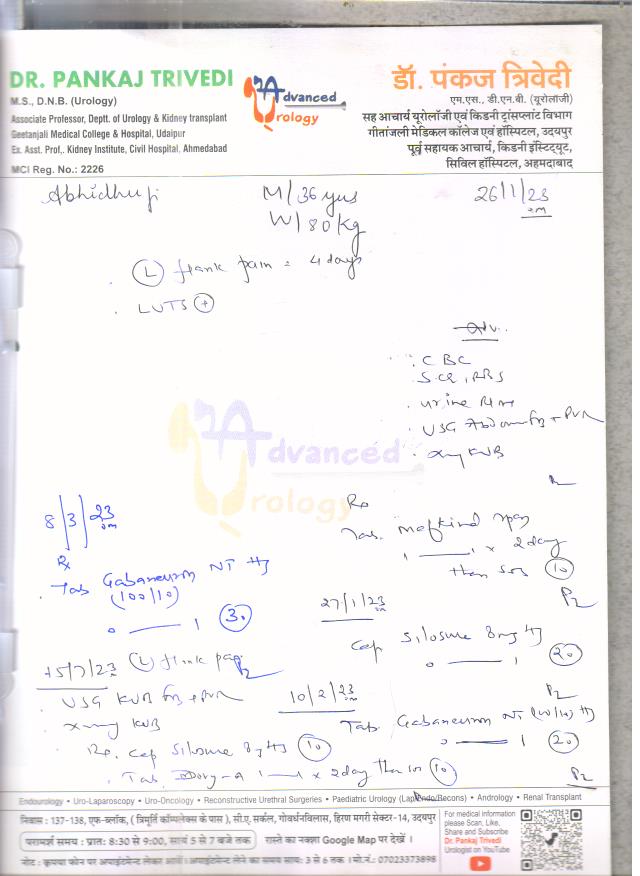 DR. PANKAJ TRIVEDI
M.S., D.N.B. (Urology)
Associate Professor, Deptt. of Urology & Kidney transplant
Geetanjali Medical College & Hospital, Udaipur
Ex. Asst. Prof,. Kidney Institute, Civil Hospital, Ahmedabad
MCI Reg. No.: 2226
Advanced
Urology
डॉ. पंकज त्रिवेदी
एम.एस., डी.एन.बी. (यूरोलॉजी)
सह आचार्य यूरोलॉजी एवं किडनी ट्रांसप्लांट विभाग
गीतांजली मेडिकल कॉलेज एवं हॉस्पिटल, उदयपुर
पूर्व सहायक आचार्य, किडनी इंस्टिट्यूट,
सिविल हॉस्पिटल, अहमदाबाद
M/36 yrs
26/1/23
W/80 kg
(L) flank pain = 4 days
LUTS (+)
Adv.
CBC
S.CR, RBS
urine
USG Abdomen + PVR
xray KUB
Advanced
Urology
8/3/23
Rx
Tab Gabaneuron NT
(100/10)
0 ——— 1 (30)
15/7/23 (L) flank pain
USG KUB + PVR
xray KUB
Rx. Cap Silosure 8mg (10)
1 —— 1 x 2 day then sos (10)
Rx
Tab. Mefkind spas
1 ——— 1 x 2 day
then sos (10)
27/1/23
Cap Silosure 8mg
0 ——— 1 (20)
10/2/23
Tab. Gabaneuron NT
0 ——— 1 (20)
Endourology • Uro-Laparoscopy • Uro-Oncology • Reconstructive Urethral Surgeries • Paediatric Urology (Lap/Endo/Recons) • Andrology • Renal Transplant
निवास : 137-138, एफ-ब्लॉक, ( त्रिमूर्ति कॉम्पलेक्स के पास ), सी.ए. सर्कल, गोवर्धनविलास, हिरण मगरी सेक्टर-14, उदयपुर
परामर्श समय : प्रात: 8:30 से 9:00, सायं 5 से 7 बजे तक रास्ते का नक्शा Google Map पर देखें ।
नोट : कृपया फोन पर अपाइंटमेन्ट लेकर आयें । अपाइंटमेन्ट लेने का समय सायं: 3 से 6 तक । मो.नं.: 07023373898
For medical information
please Scan, Like,
Share and Subscribe
Dr. Pankaj Trivedi
Urologist on YouTube